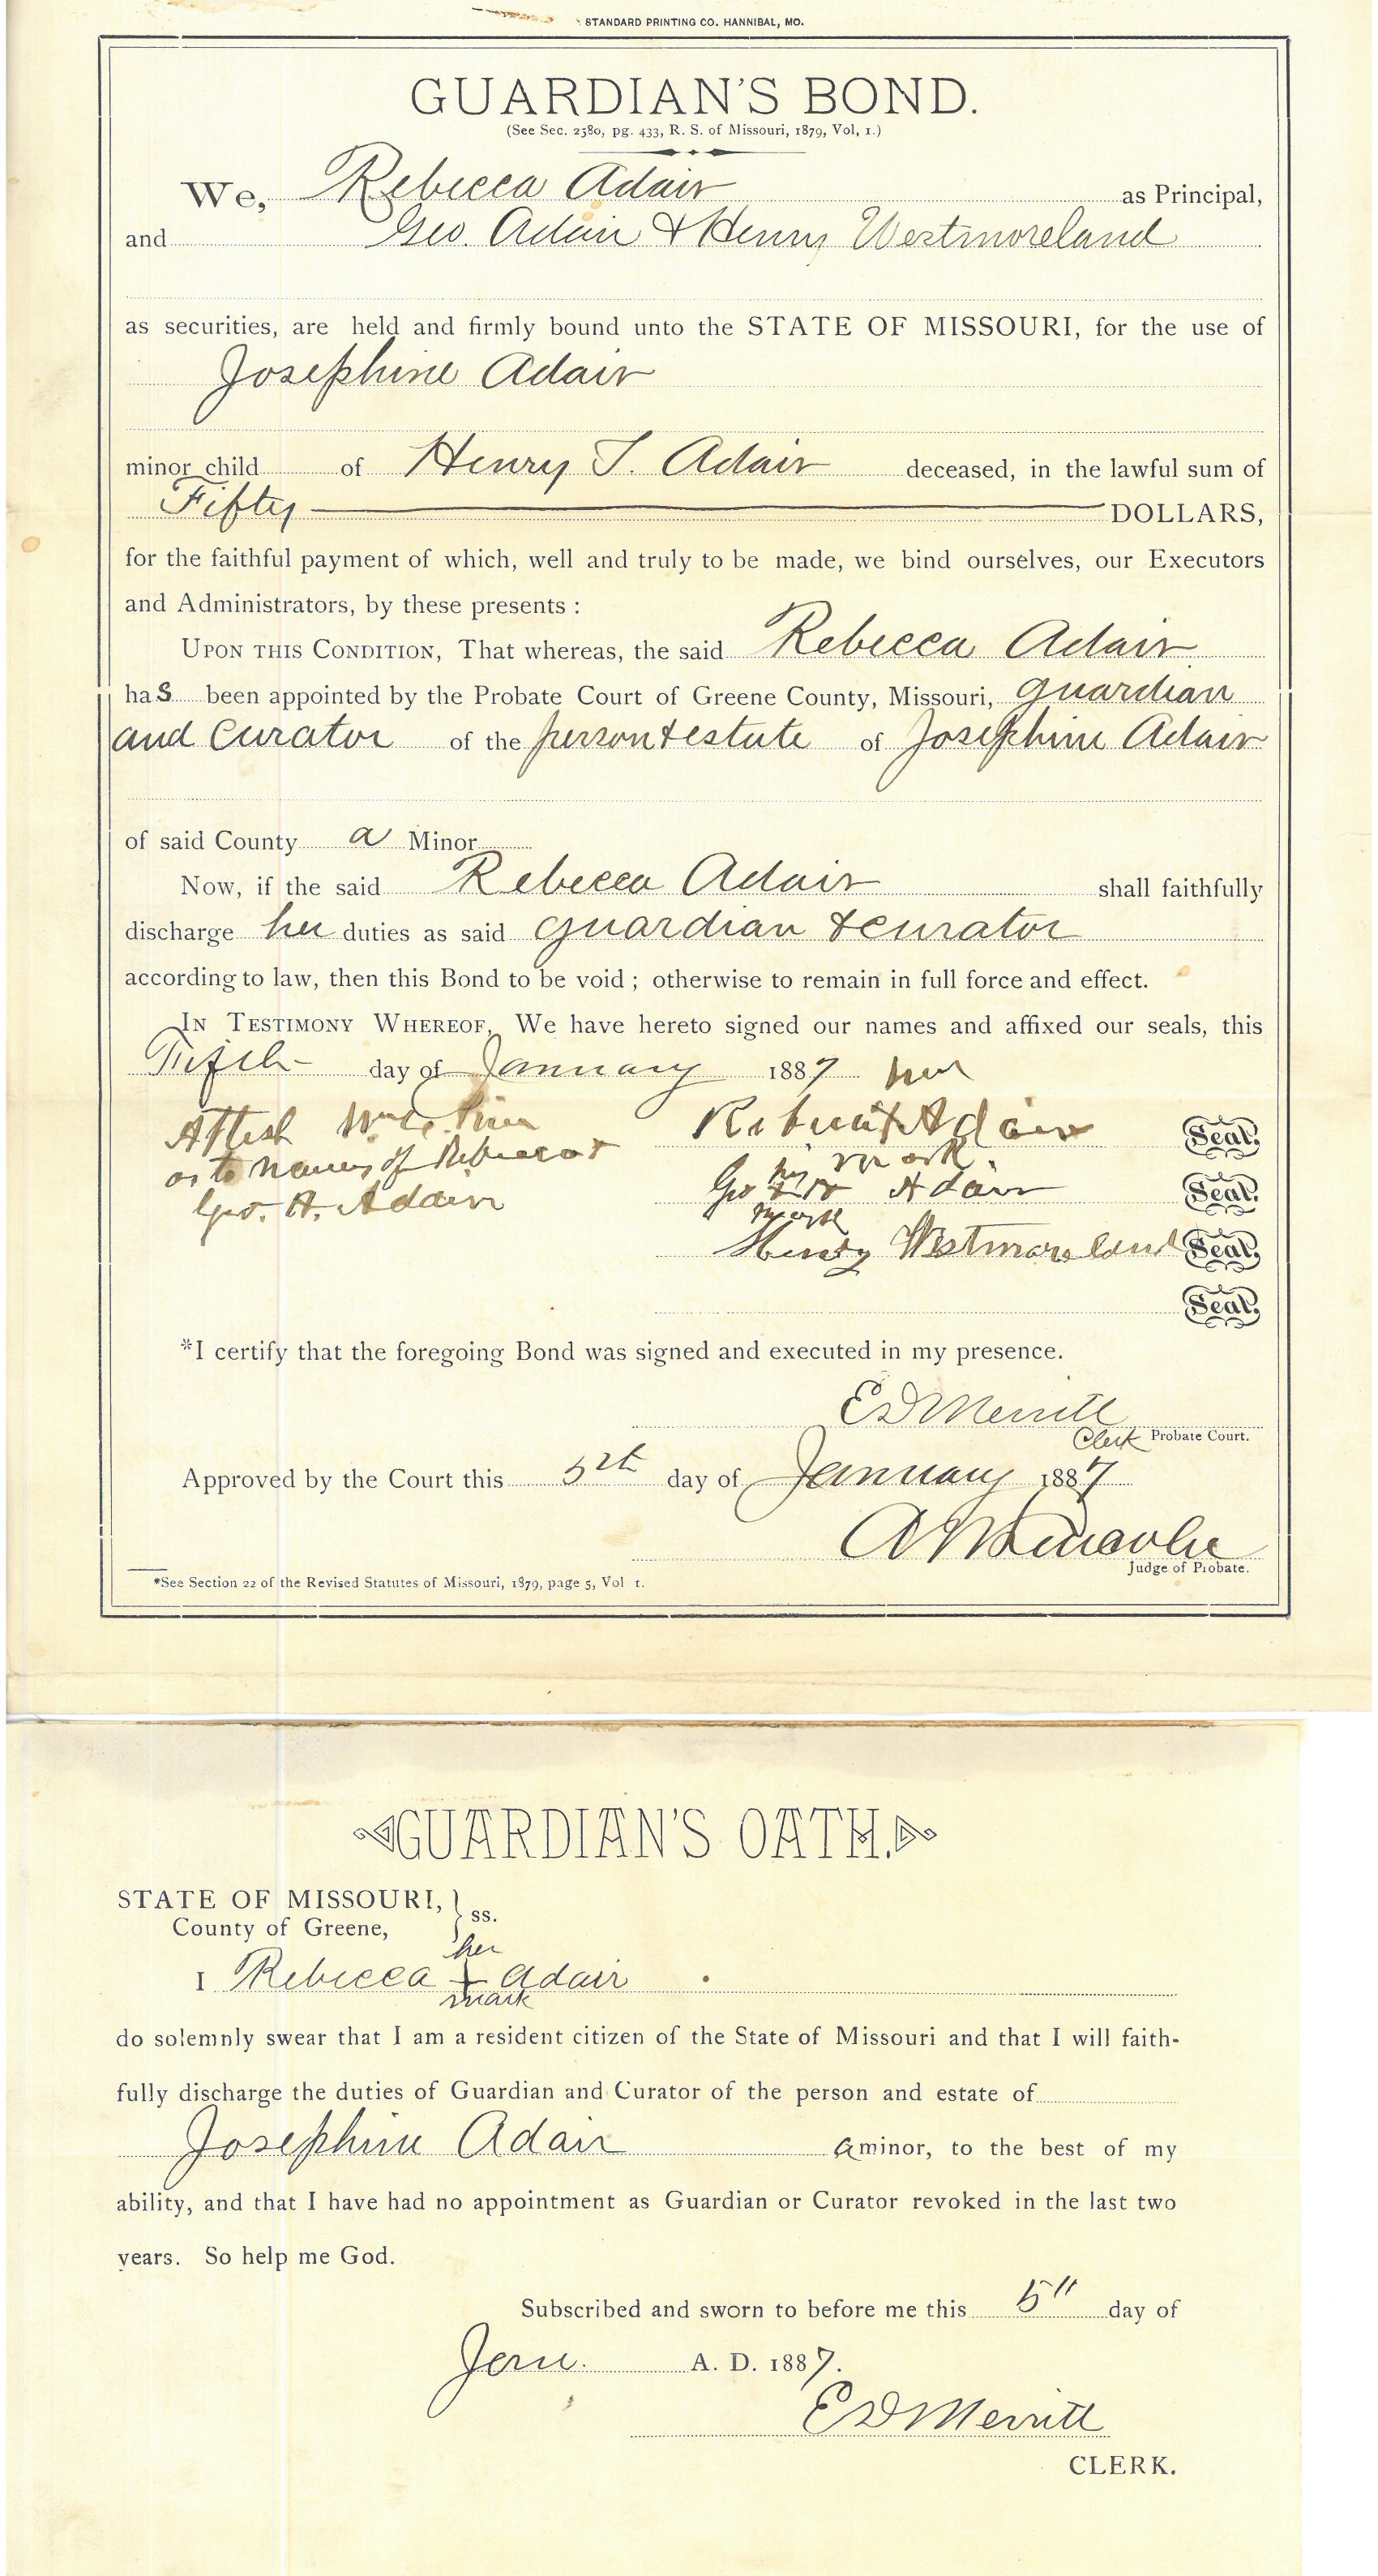 STANDARD PRINTING CO. HANNIBAL, MO.
GUARDIAN'S BOND.
(See Sec. 2580, pg. 433, R. S. of Missouri, 1879, Vol, 1.)
We, Rebecca Adair as Principal,
and Geo. Adair & Henry Westmoreland
as securities, are held and firmly bound unto the STATE OF MISSOURI, for the use of
Josephine Adair
minor child of Henry T. Adair deceased, in the lawful sum of
Fifty DOLLARS,
for the faithful payment of which, well and truly to be made, we bind ourselves, our Executors
and Administrators, by these presents :
UPON THIS CONDITION, That whereas, the said Rebecca Adair
has been appointed by the Probate Court of Greene County, Missouri, guardian
and Curator of the person & estate of Josephine Adair
of said County a Minor
Now, if the said Rebecca Adair shall faithfully
discharge her duties as said guardian & curator
according to law, then this Bond to be void ; otherwise to remain in full force and effect.
IN TESTIMONY WHEREOF, We have hereto signed our names and affixed our seals, this
Fifth day of January 1887
her
Attest Rebecca X Adair Seal.
mark
as to names of Rebecca &
his
Geo. A. Adair Geo Adair Seal.
mark
Henry Westmoreland Seal.
Seal.
*I certify that the foregoing Bond was signed and executed in my presence.
E D Merritt
Clerk Probate Court.
Approved by the Court this 5th day of January 1887
Judge of Probate.
*See Section 22 of the Revised Statutes of Missouri, 1879, page 5, Vol 1.
GUARDIAN'S OATH.
STATE OF MISSOURI, } ss.
County of Greene,
her
I Rebecca + Adair
mark
do solemnly swear that I am a resident citizen of the State of Missouri and that I will faith-
fully discharge the duties of Guardian and Curator of the person and estate of
Josephine Adair a minor, to the best of my
ability, and that I have had no appointment as Guardian or Curator revoked in the last two
years. So help me God.
Subscribed and sworn to before me this 5" day of
Jany. A. D. 1887.
E D Merritt
CLERK.